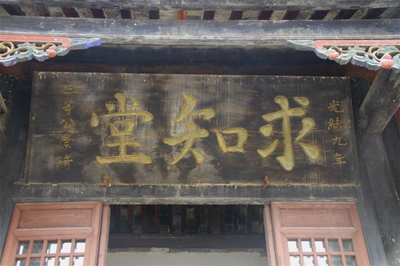 光緒九年
求知堂